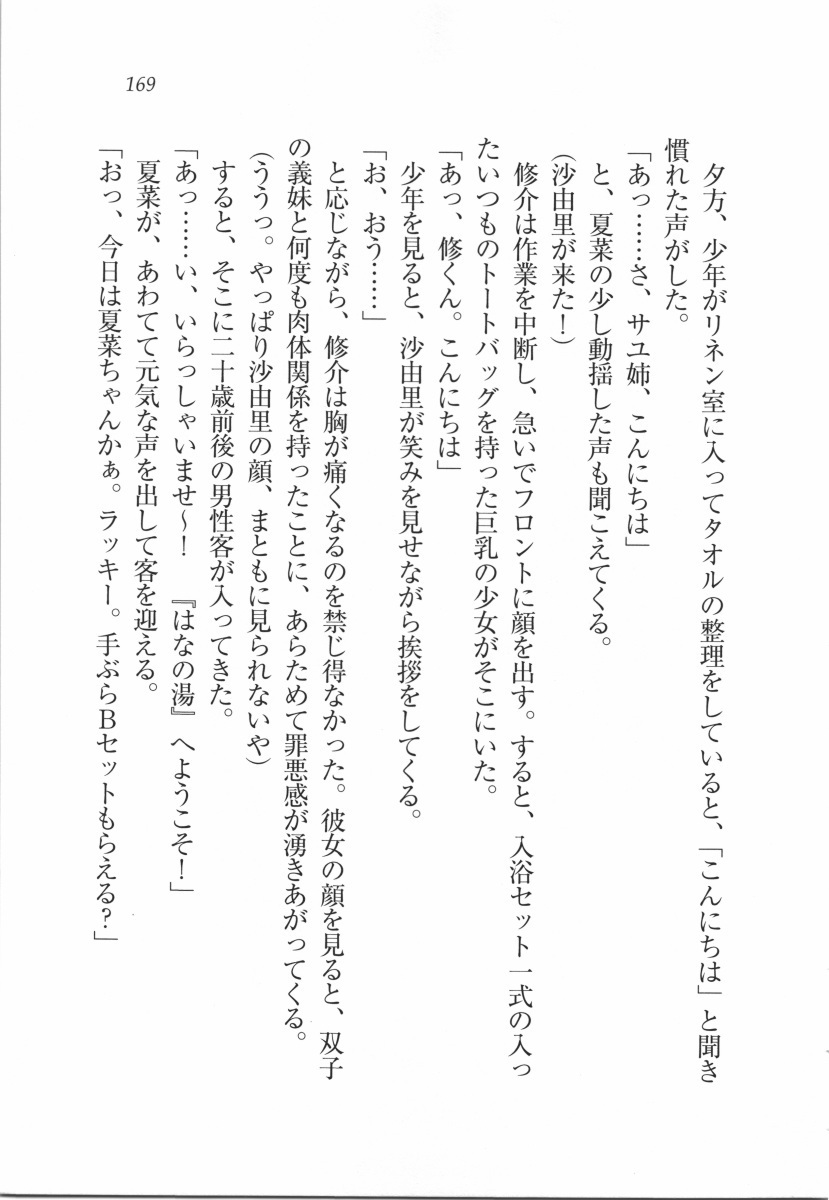 169
夕方、少年がリネン室に入ってタオルの整理をしていると、「こんにちは」と聞き
慣れた声がした。
「あっ……さ、サユ姉、こんにちは」
と、夏菜の少し動揺した声も聞こえてくる。
(沙由里が来た！)
修介は作業を中断し、急いでフロントに顔を出す。すると、入浴セット一式の入っ
たいつものトートバッグを持った巨乳の少女がそこにいた。
「あっ、修くん。こんにちは」
少年を見ると、沙由里が笑みを見せながら挨拶をしてくる。
「お、おう……」
と応じながら、修介は胸が痛くなるのを禁じ得なかった。彼女の顔を見ると、双子
の義妹と何度も肉体関係を持ったことに、あらためて罪悪感が湧きあがってくる。
(ううっ。やっぱり沙由里の顔、まともに見られないや)
すると、そこに二十歳前後の男性客が入ってきた。
「あっ……い、いらっしゃいませ～！　『はなの湯』へようこそ！」
夏菜が、あわてて元気な声を出して客を迎える。
「おっ、今日は夏菜ちゃんかぁ。ラッキー。手ぶらＢセットもらえる？」